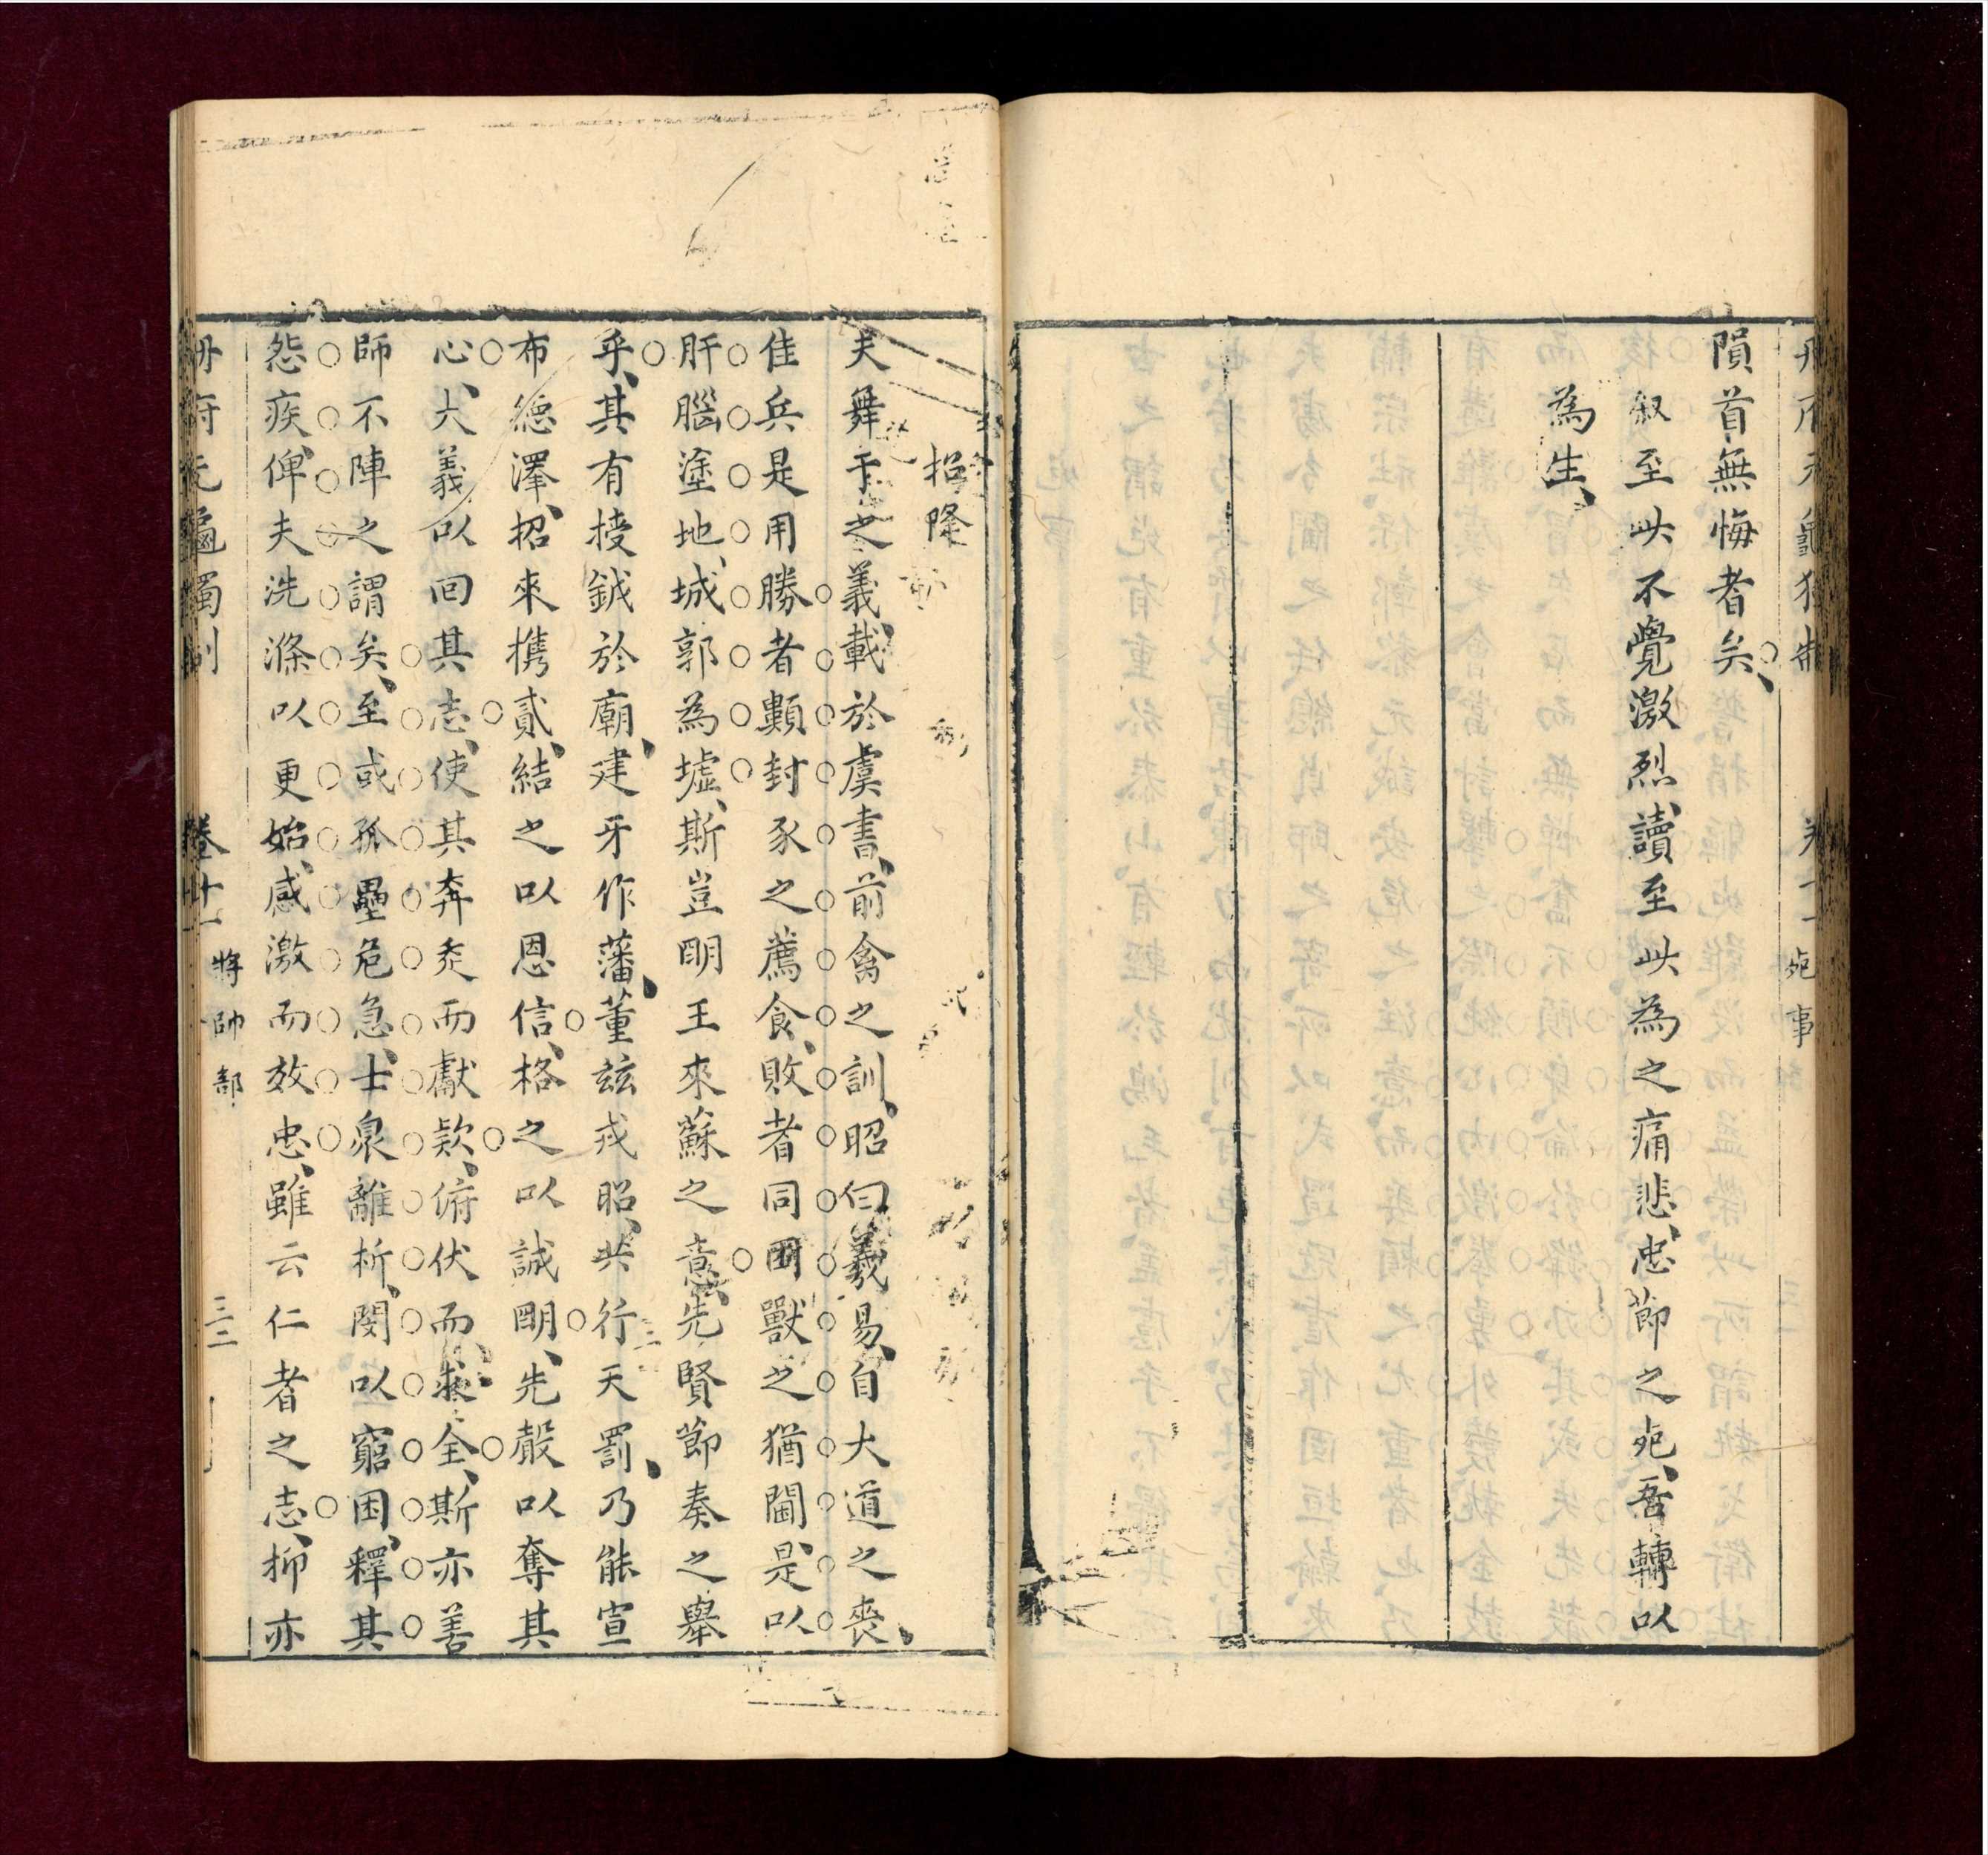 冊府元龜獨制 卷十一 死事
隕首無悔者矣、
叙至此不覺激烈、讀至此為之痛悲、忠節之死、吾轉以
為生、
招降
夫舞干之義、載於虞書、前禽之訓、昭曰羲易、自大道之喪、
佳兵是用勝者顆封豕之薦食、敗者同困獸之猶鬪、是以
肝腦塗地、城郭為墟、斯豈明王來蘇之意、先賢節奏之舉
乎、其有授鉞於廟、建牙作藩、董玆戎昭、共行天罰、乃能宣
布德澤、招來携貳、結之以恩信、格之以誠明、先聲以奪其
心、大義以回其志、使其奔走而獻欵、俯伏而求全、斯亦善
師不陣之謂矣、至或孤壘危急、士衆離析、閔以窮困、釋其
怨疾、俾夫洗滌以更始、感激而效忠、雖云仁者之志、抑亦
冊府元龜獨制 卷十一 將帥部 三二